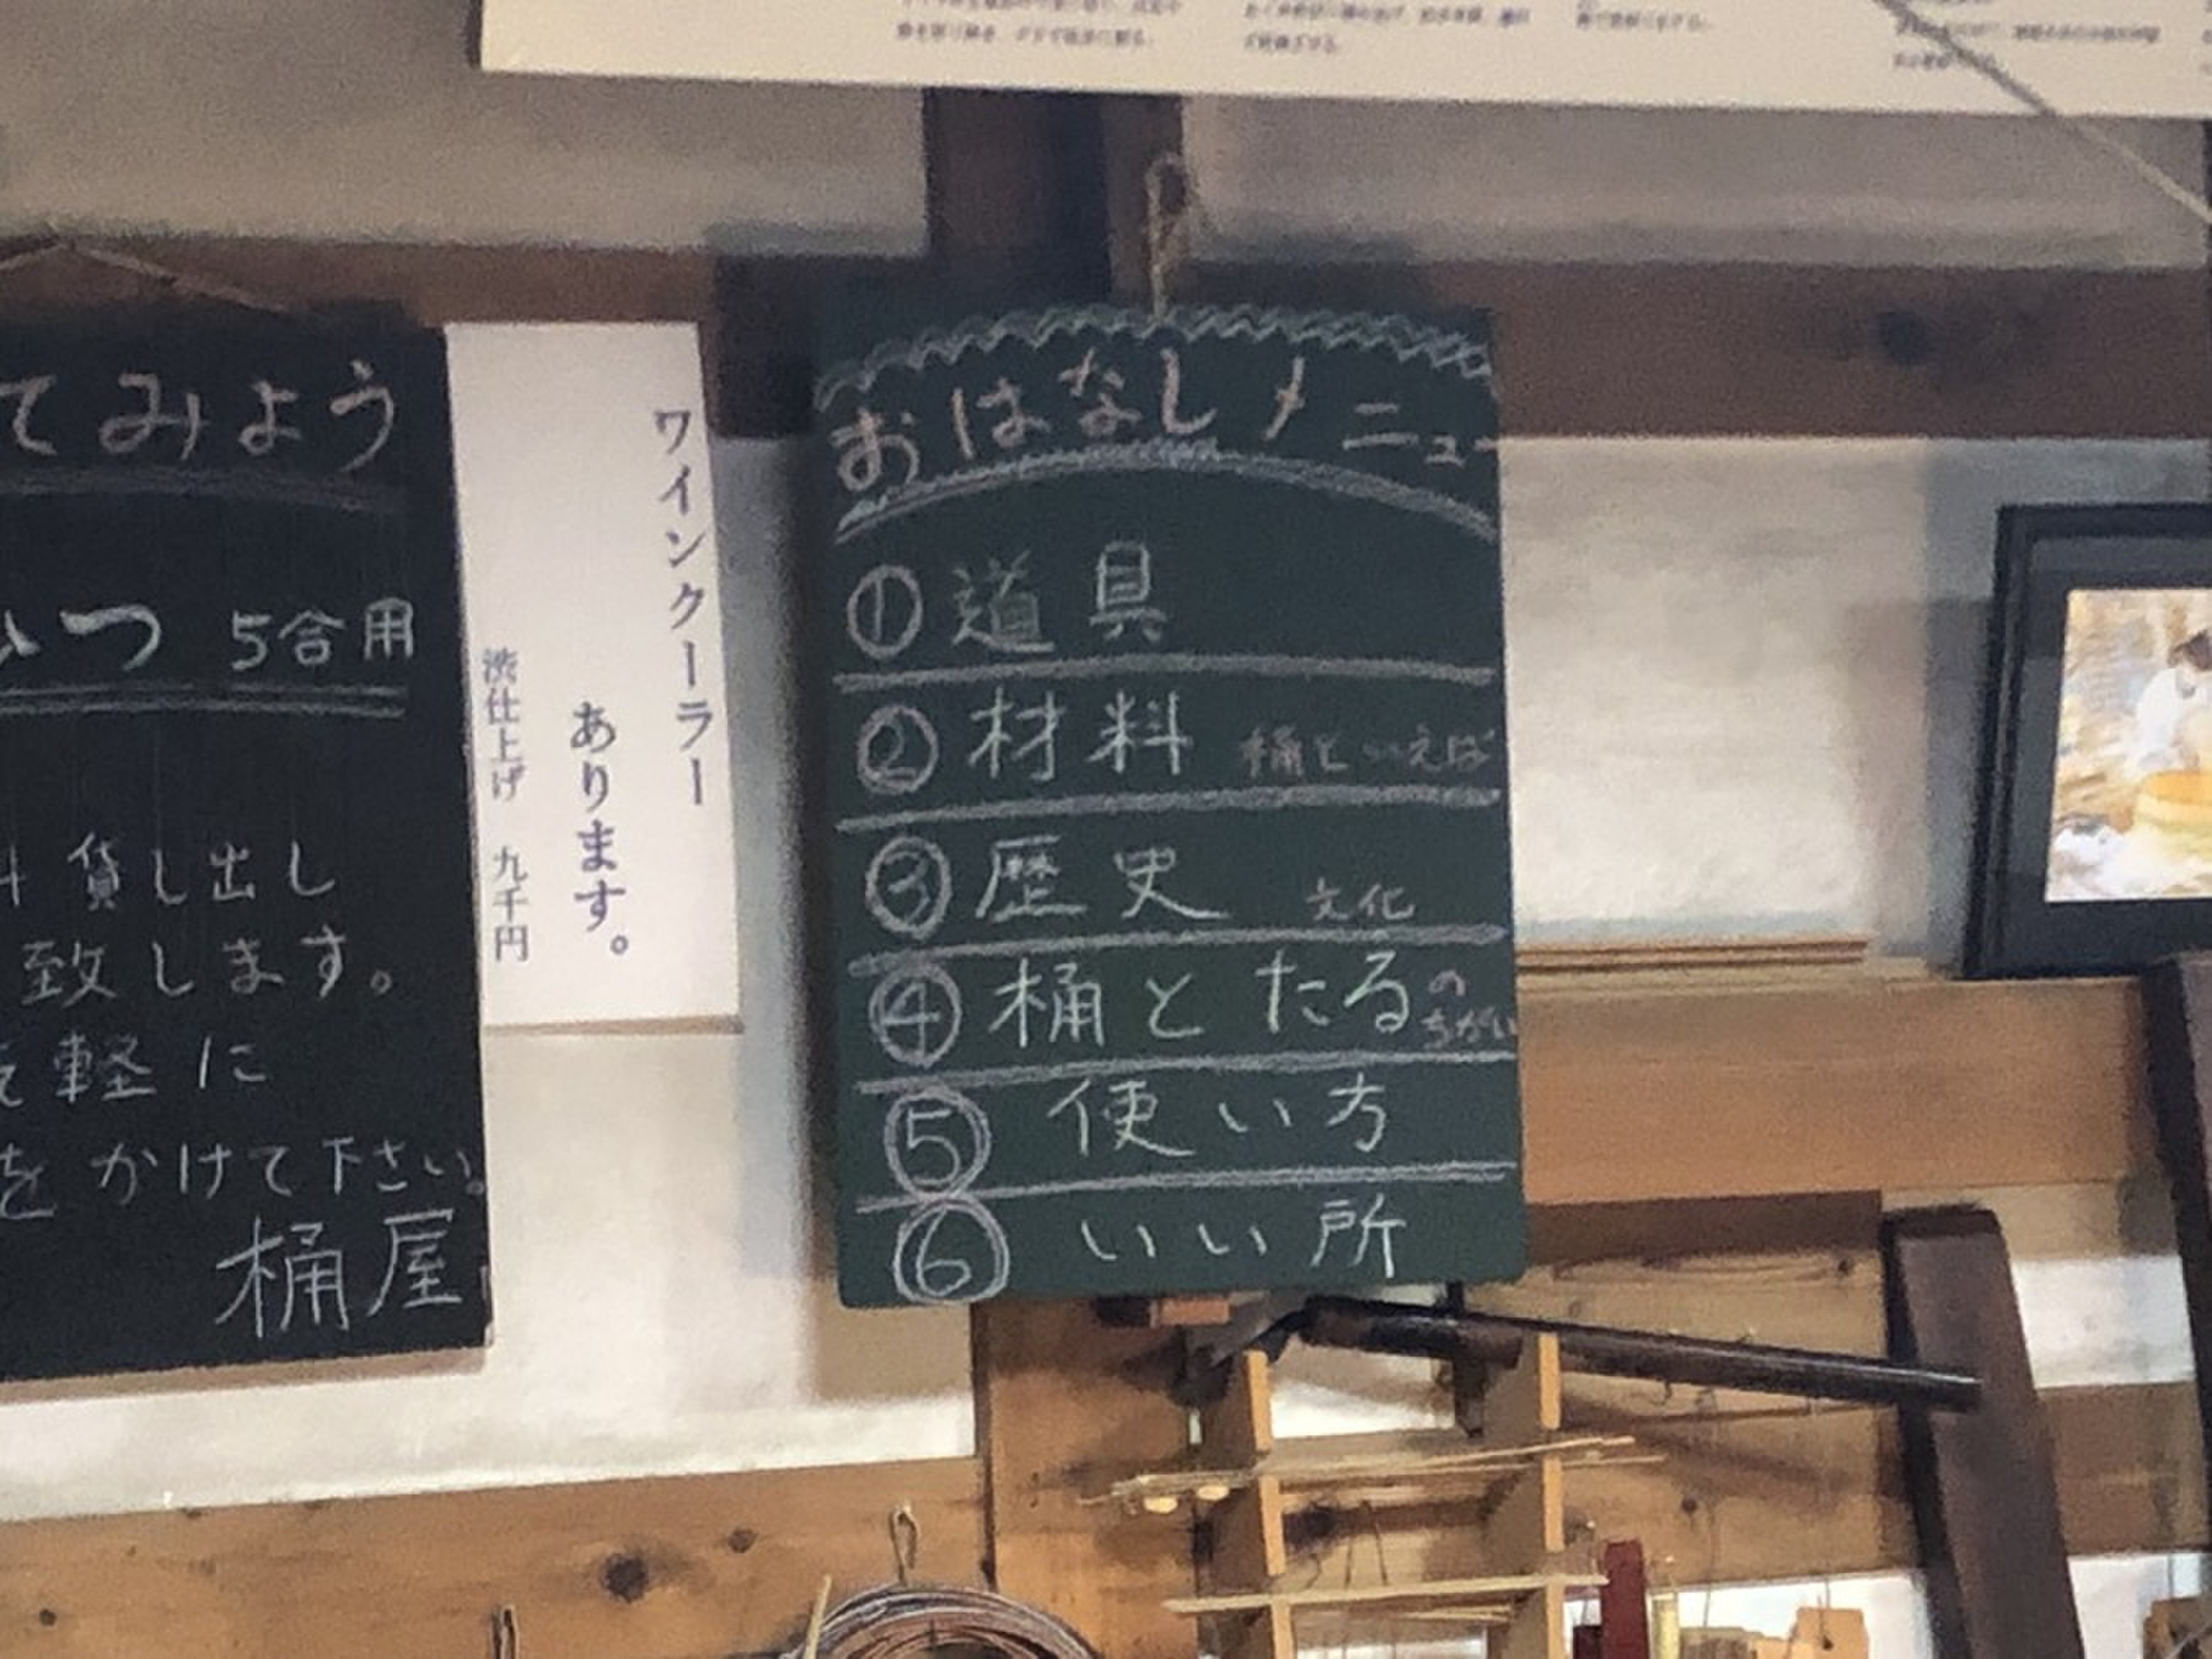 てみよう
ひつ 5合用
貸し出し
致します。
軽に
を かけて下さい。
桶屋
ワインクーラー
あります。
渋仕上げ 九千円
おはなしメニュー
① 道具
② 材料 桶といえば
③ 歴史 文化
④ 桶とたるのちがい
⑤ 使い方
⑥ いい所